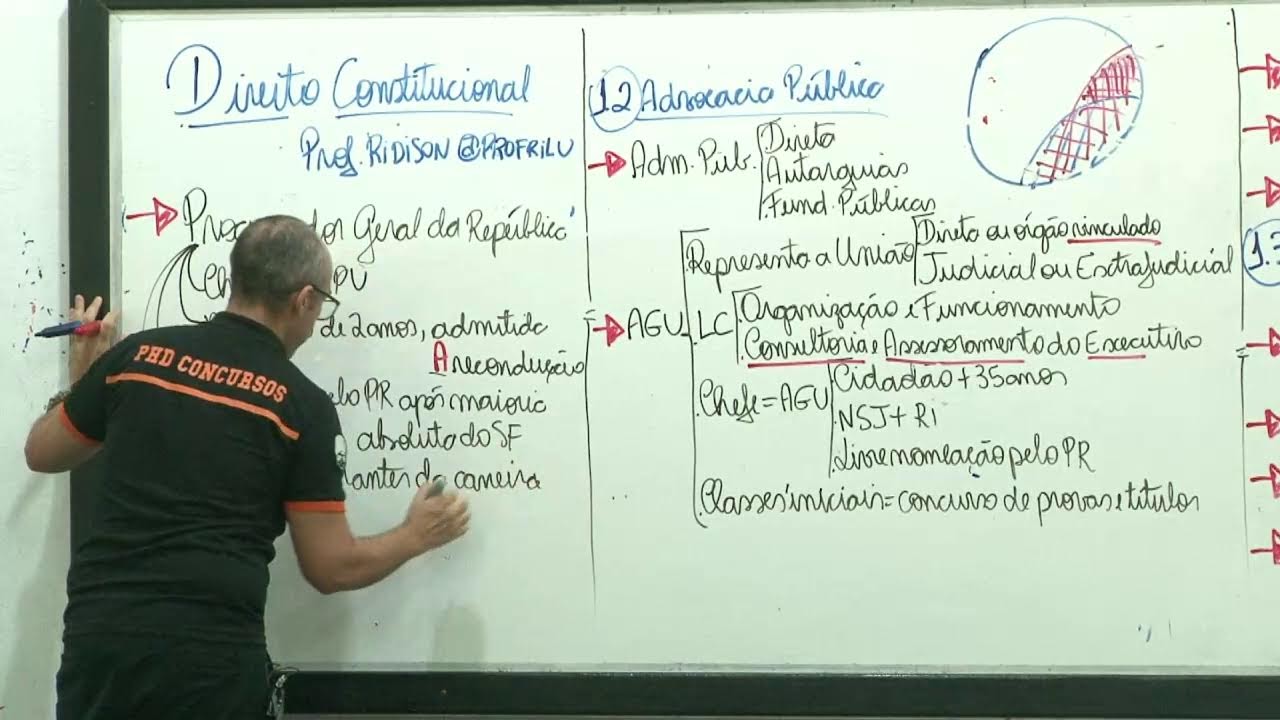 Direito Constitucional
Prof. RiDiSON @PROFRiLU
Geral da República
de 2 anos, admitida
A recondução
PR após maioria
absoluta do SF
da carreira
PHD CONCURSOS
1.2 Advocacia Pública
Adm. Púb.
Direta
Autarquias
Fund. Públicas
AGU
Representa a União
Direta ou órgão vinculado
Judicial ou Extrajudicial
LC
Organização e Funcionamento
Consultoria e Assessoramento do Executivo
Chefe = AGU
Cidadão + 35 anos
NSJ + Ri
Livre nomeação pelo PR
Classes iniciais = concurso de provas e títulos
1.3